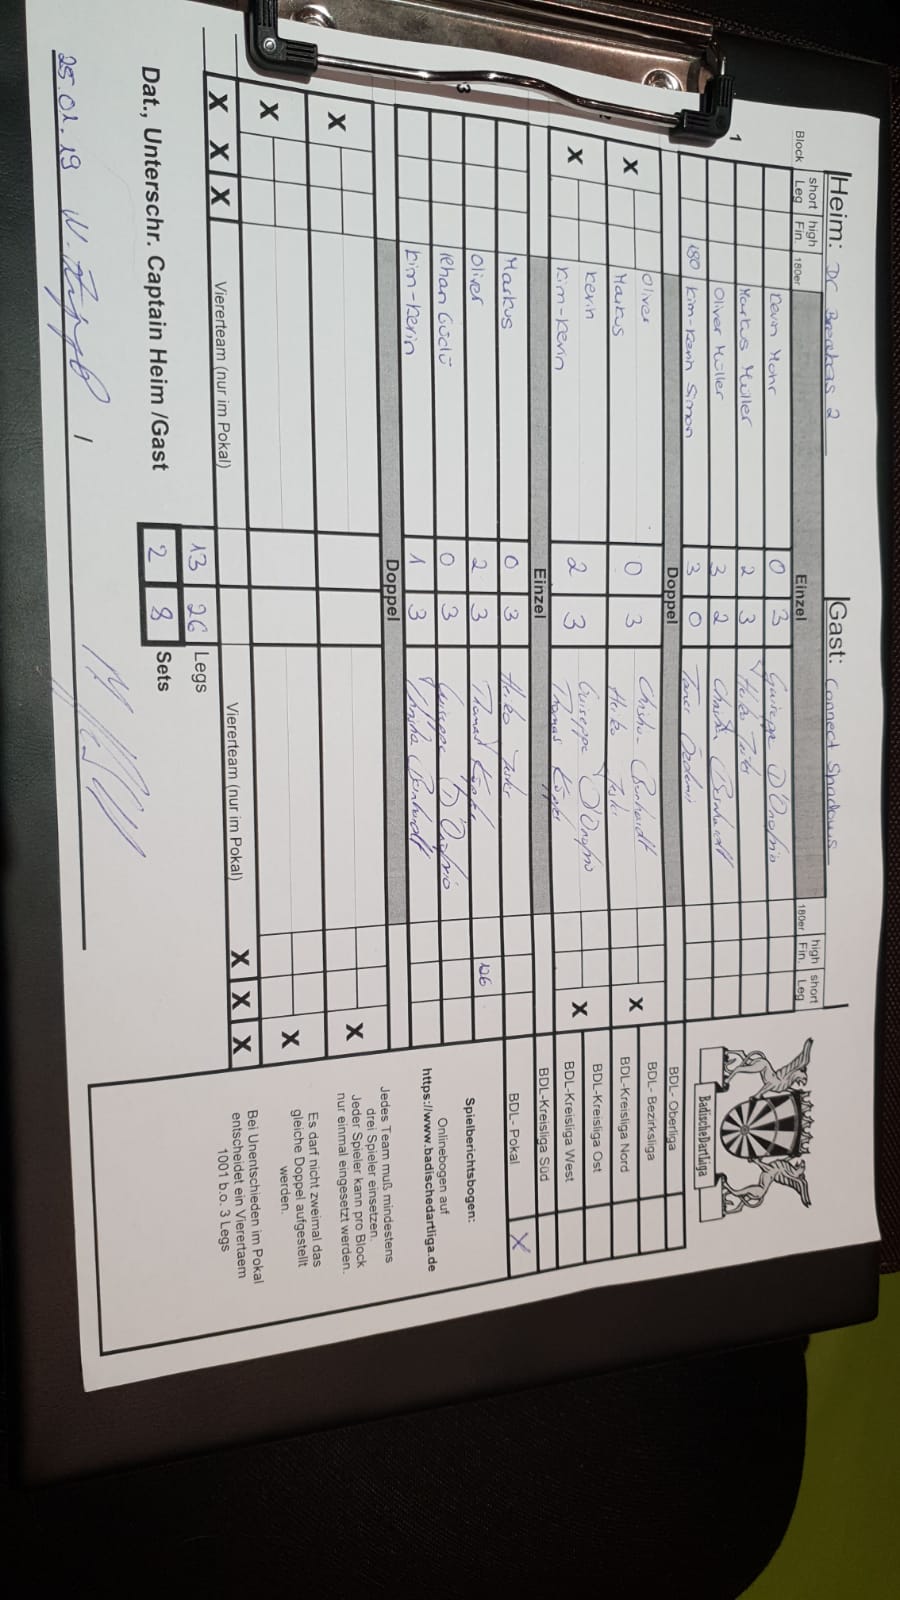 Heim: DC Breakas 2 Gast: Connect Shadows
Block short Leg high Fin. 180er Einzel 180er high Fin. short Leg
1 Kevin Mohr 0 3 Guiseppe D'Onofrio
Markus Müller 2 3 Heiko
Oliver Müller 3 2 Christian Bernhardt
180 Kim-Kevin Simon 3 0
Doppel
Oliver Bernhardt
X Markus 0 3 Heiko X
Kevin Guiseppe D'Onofrio
X Kim-Kevin 2 3 Thomas X
Einzel
Markus 0 3 Heiko
3 Oliver 2 3 Thomas 126
0 3 Guiseppe D'Onofrio
Kim-Kevin 1 3 Bernhardt
Doppel
X X
X X
X X X Viererteam (nur im Pokal) Viererteam (nur im Pokal) X X X
13 26 Legs
2 8 Sets
Dat., Unterschr. Captain Heim /Gast
25.01.19
BadischeDartLiga
BDL- Oberliga
BDL- Bezirksliga
BDL-Kreisliga Nord
BDL-Kreisliga Ost
BDL-Kreisliga West
BDL-Kreisliga Süd
BDL- Pokal X
Spielberichtsbogen:
Onlinebogen auf
https://www.badischedartliga.de
Jedes Team muß mindestens
drei Spieler einsetzen.
Jeder Spieler kann pro Block
nur einmal eingesetzt werden.
Es darf nicht zweimal das
gleiche Doppel aufgestellt
werden.
Bei Unentschieden im Pokal
entscheidet ein Vierertaem
1001 b.o. 3 Legs